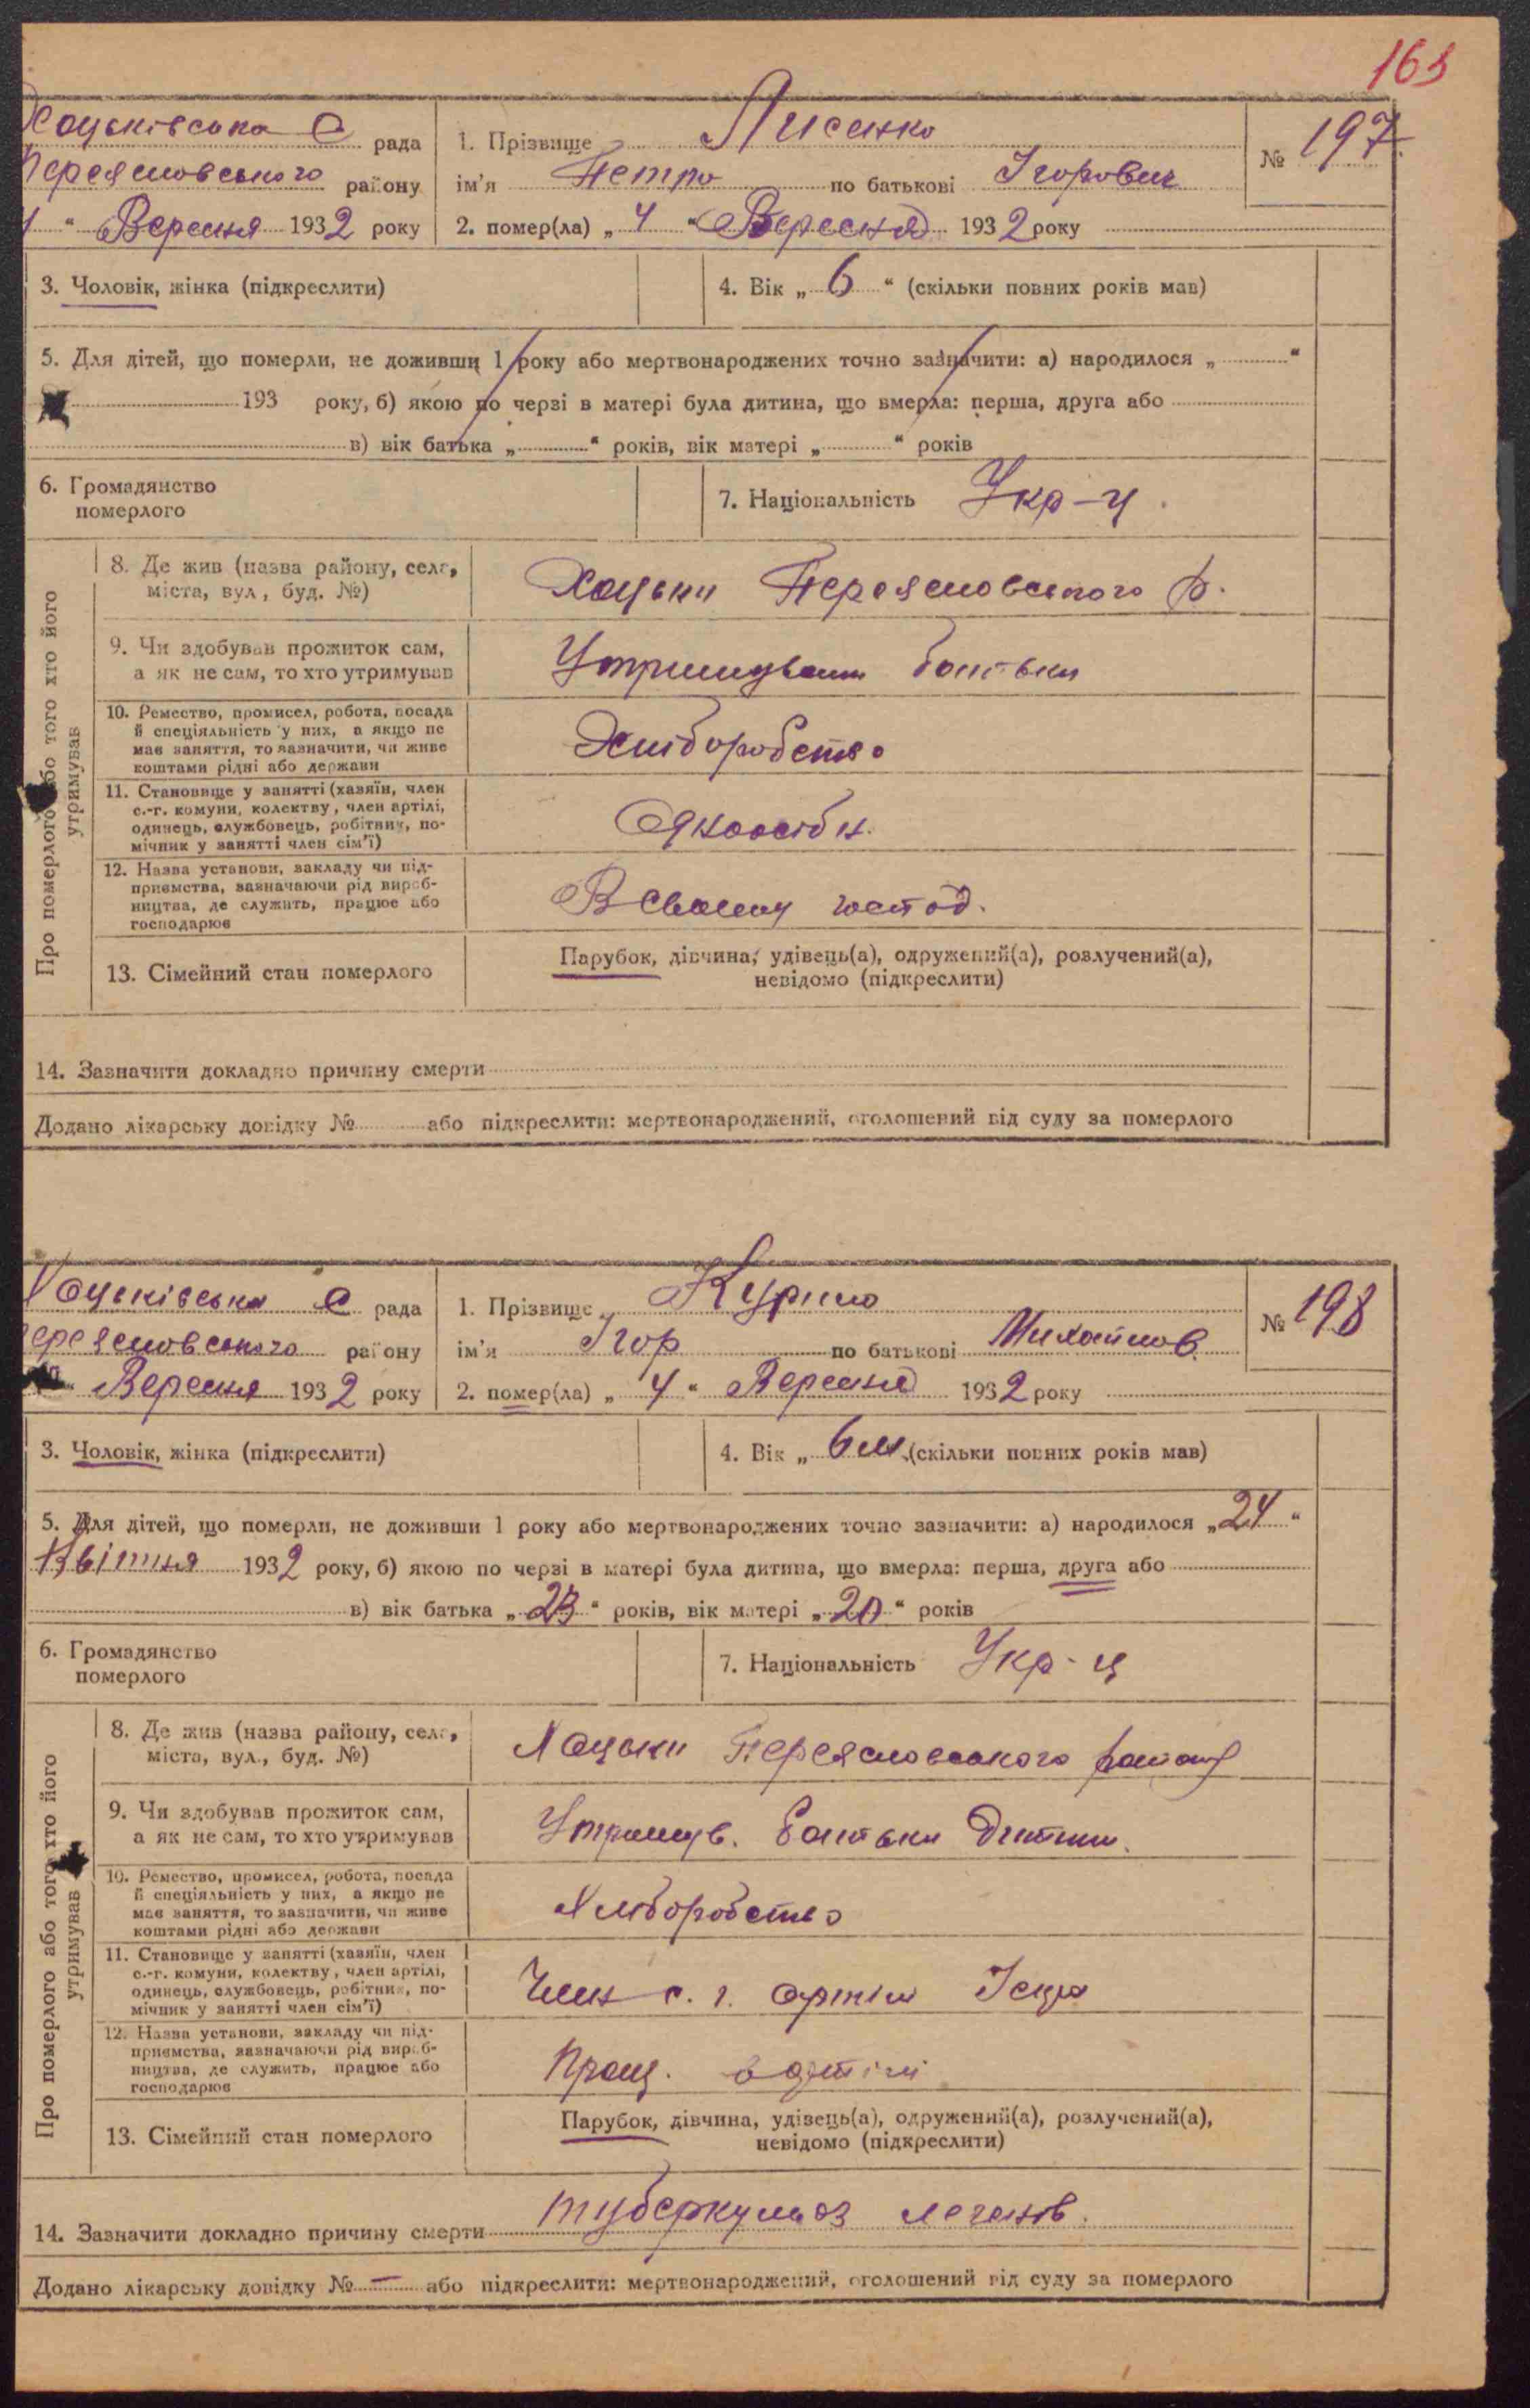 165
Хоцьківська С рада
1. Прізвище Лисенко
№ 197
Переяславського району
ім'я Петро по батькові Ігорович
4 " Вересня 1932 року
2. помер(ла) „ 4 " Вересня 1932 року
3. Чоловік, жінка (підкреслити)
4. Вік „ 6 " (скільки повних років мав)
5. Для дітей, що померли, не доживши 1 року або мертвонароджених точно зазначити: а) народилося „ "
193 року, б) якою по черзі в матері була дитина, що вмерла: перша, друга або
в) вік батька „ " років, вік матері „ " років
6. Громадянство
померлого
7. Національність Укр-ц
Про померлого або того хто його
утримував
8. Де жив (назва району, села,
міста, вул, буд. №)
Хоцьки Переяславського р.
9. Чи здобував прожиток сам,
а як не сам, то хто утримував
Утримували батьки
10. Ремество, промисел, робота, посада
й спеціяльність у них, а якщо не
мав заняття, то зазначити, чи живе
коштами рідні або держави
Хліборобство
11. Становище у занятті (хазяїн, член
с.-г. комуни, колектву, член артілі,
одинець, службовець, робітник, по-
мічник у занятті член сім'ї)
Одноосібн.
12. Назва установи, закладу чи під-
приємства, зазначаючи рід вироб-
ництва, де служить, працює або
господарює
В своєму господ.
13. Сімейний стан померлого
Парубок, дівчина, удівець(а), одружений(а), розлучений(а),
невідомо (підкреслити)
14. Зазначити докладно причину смерти
Додано лікарську довідку № або підкреслити: мертвонароджений, оголошений від суду за померлого
Хоцьківська С рада
1. Прізвище Курило
№ 198
Переяславського району
ім'я Ігор по батькові Михайлов.
Вересня 1932 року
2. помер(ла) „ 4 " Вересня 1932 року
3. Чоловік, жінка (підкреслити)
4. Вік „ 6 м. (скільки повних років мав)
5. Для дітей, що померли, не доживши 1 року або мертвонароджених точно зазначити: а) народилося „ 24 "
Квітня 1932 року, б) якою по черзі в матері була дитина, що вмерла: перша, друга або
в) вік батька „ 23 " років, вік матері „ 20 " років
6. Громадянство
померлого
7. Національність Укр-ц
Про померлого або того хто його
утримував
8. Де жив (назва району, села,
міста, вул., буд. №)
Хоцьки Переяславського району
9. Чи здобував прожиток сам,
а як не сам, то хто утримував
Утримув. батьки дитини.
10. Ремество, промисел, робота, посада
й спеціяльність у них, а якщо не
мав заняття, то зазначити, чи живе
коштами рідні або держави
Хліборобство
11. Становище у занятті (хазяїн, член
с.-г. комуни, колектву, член артілі,
одинець, службовець, робітник, по-
мічник у занятті член сім'ї)
Член с. г. артіли
12. Назва установи, закладу чи під-
приємства, зазначаючи рід вироб-
ництва, де служить, працює або
господарює
Прац. в артілі
13. Сімейний стан померлого
Парубок, дівчина, удівець(а), одружений(а), розлучений(а),
невідомо (підкреслити)
14. Зазначити докладно причину смерти туберкульоз легенів.
Додано лікарську довідку № — або підкреслити: мертвонароджений, оголошений від суду за померлого